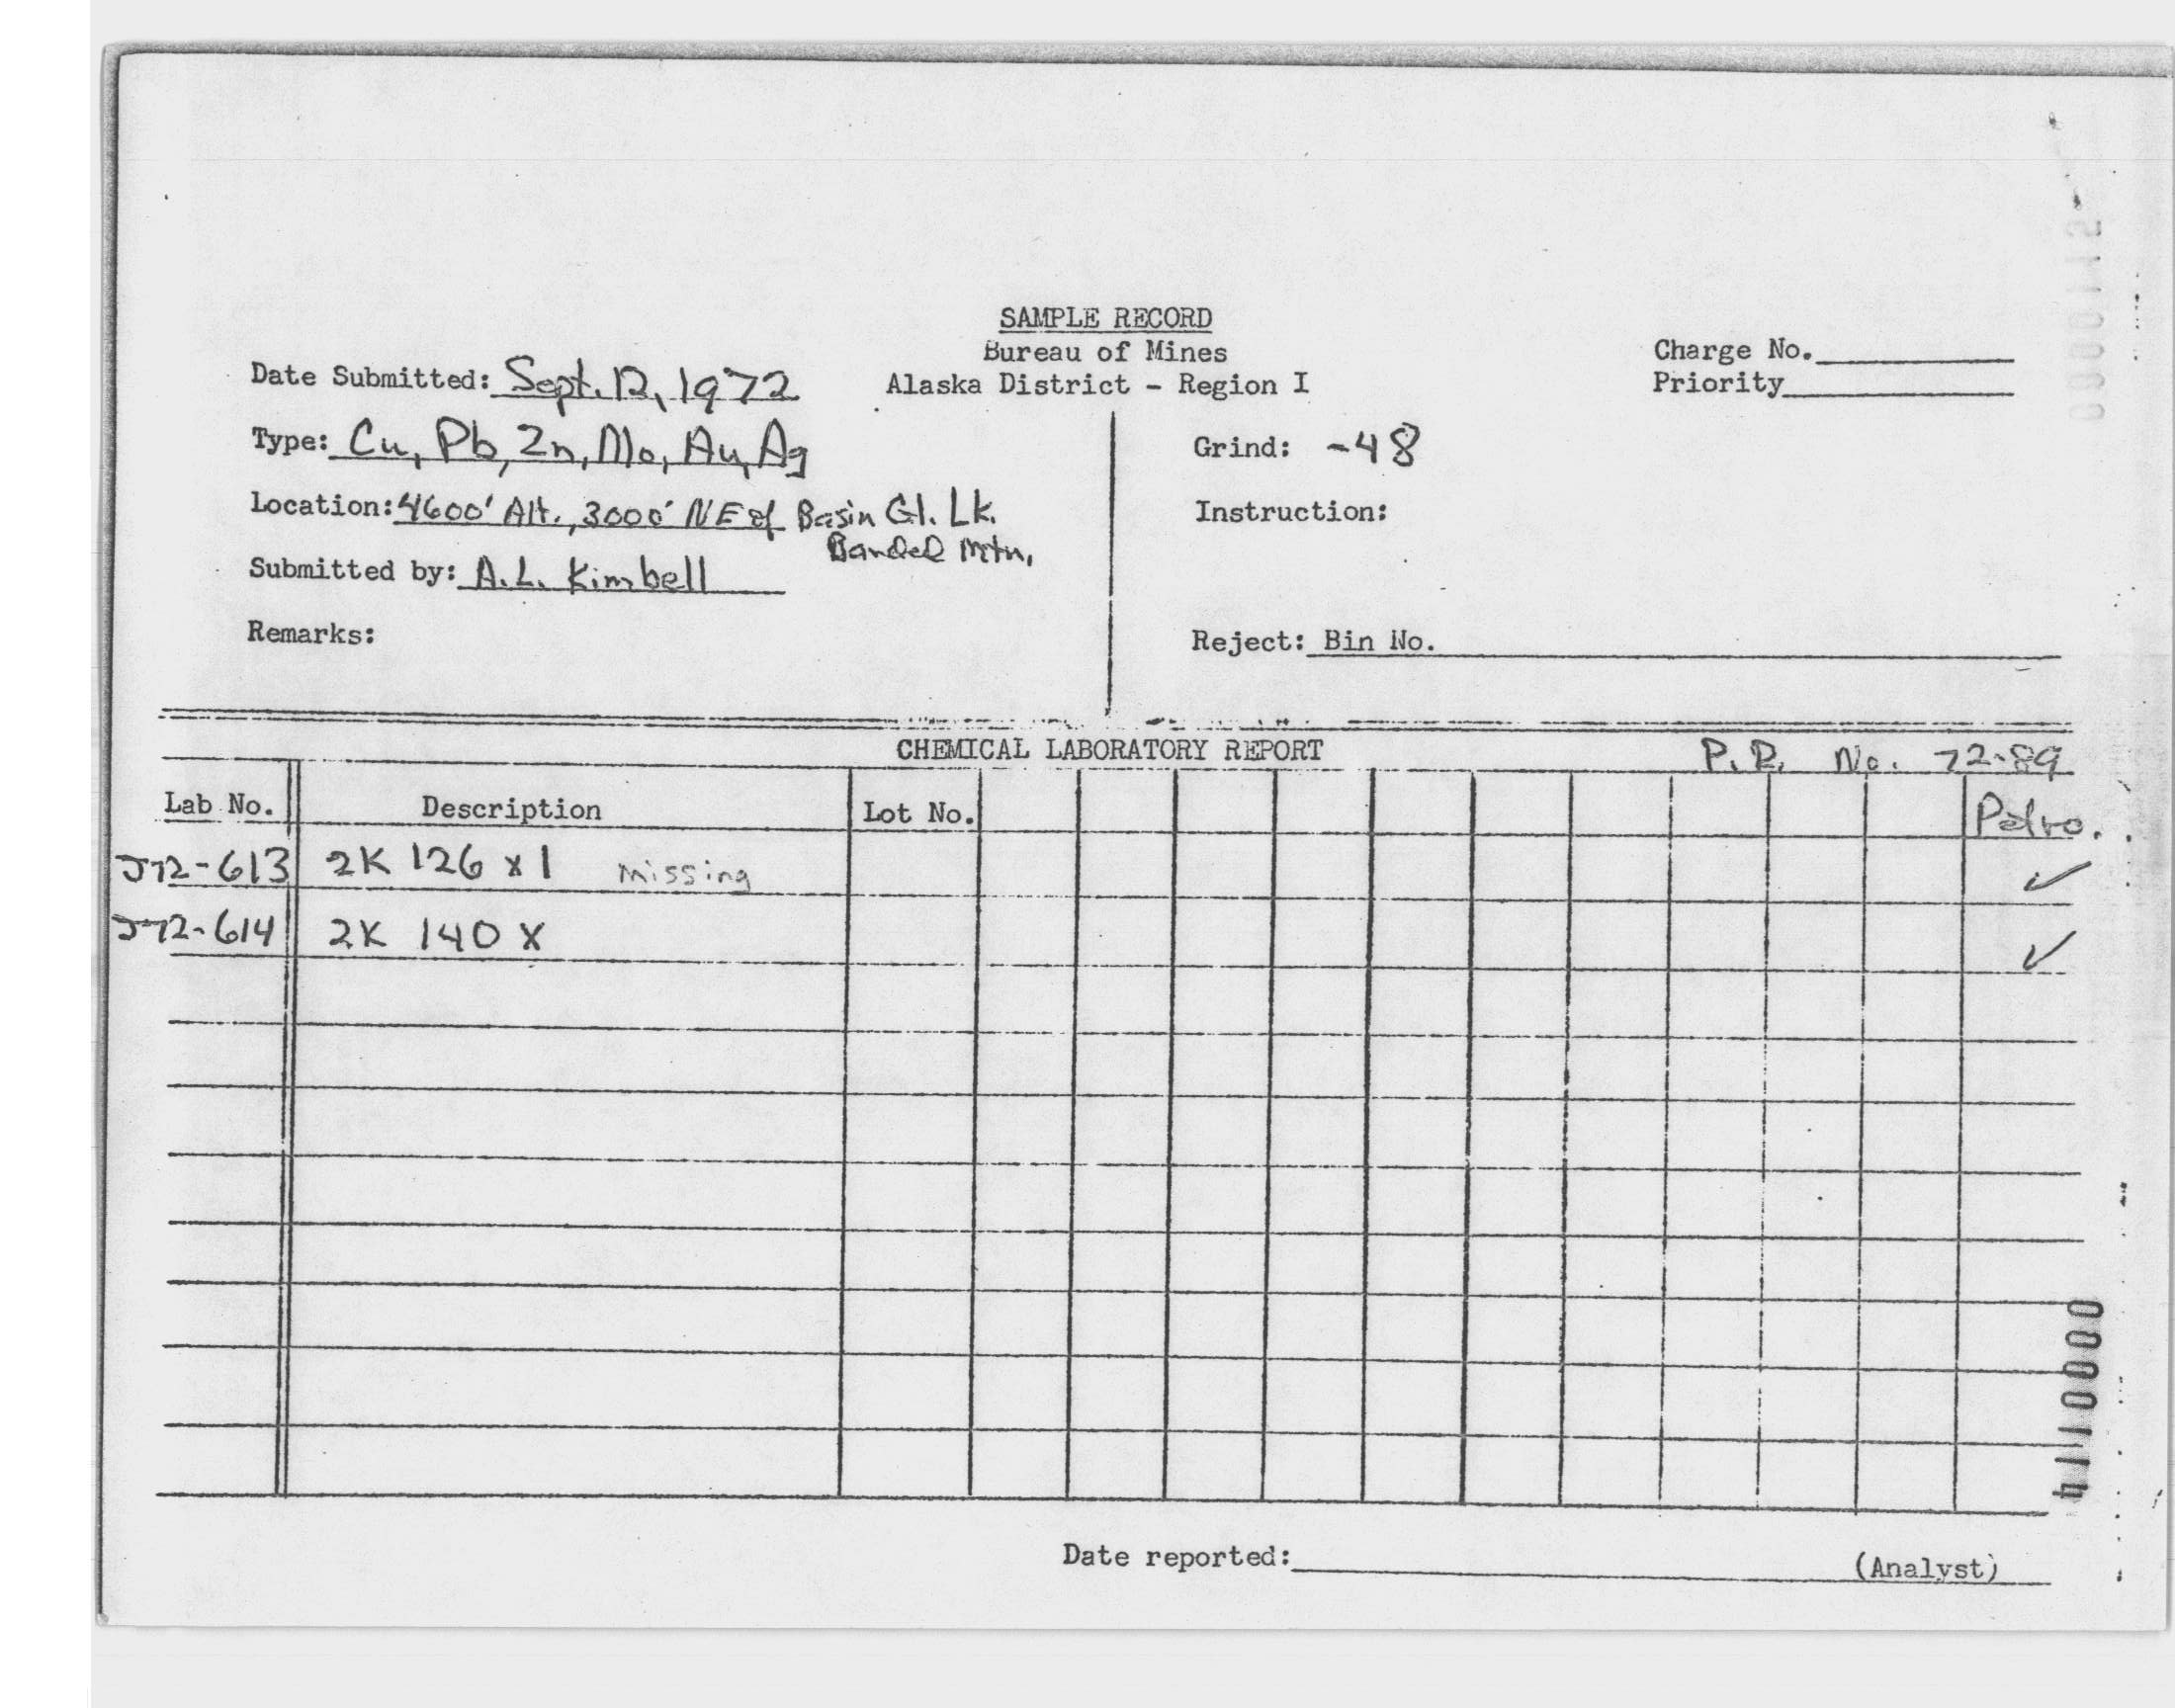 SAMPLE RECORD
Bureau of Mines
Alaska District - Region I
Charge No.
Priority
Date Submitted: Sept. 12, 1972
Type: Cu, Pb, Zn, Mo, Au, Ag
Location: 4600' Alt., 3000' NE of Basin Gl. Lk.
Banded Mtn,
Submitted by: A.L. Kimbell
Remarks:
Grind: -48
Instruction:
Reject: Bin No.
CHEMICAL LABORATORY REPORT P.R. No. 72-89
Lab No. Description Lot No. Petro.
J72-613 2K 126 x 1 missing ✓
J72-614 2K 140 X ✓
Date reported: (Analyst)
0000114
0000115